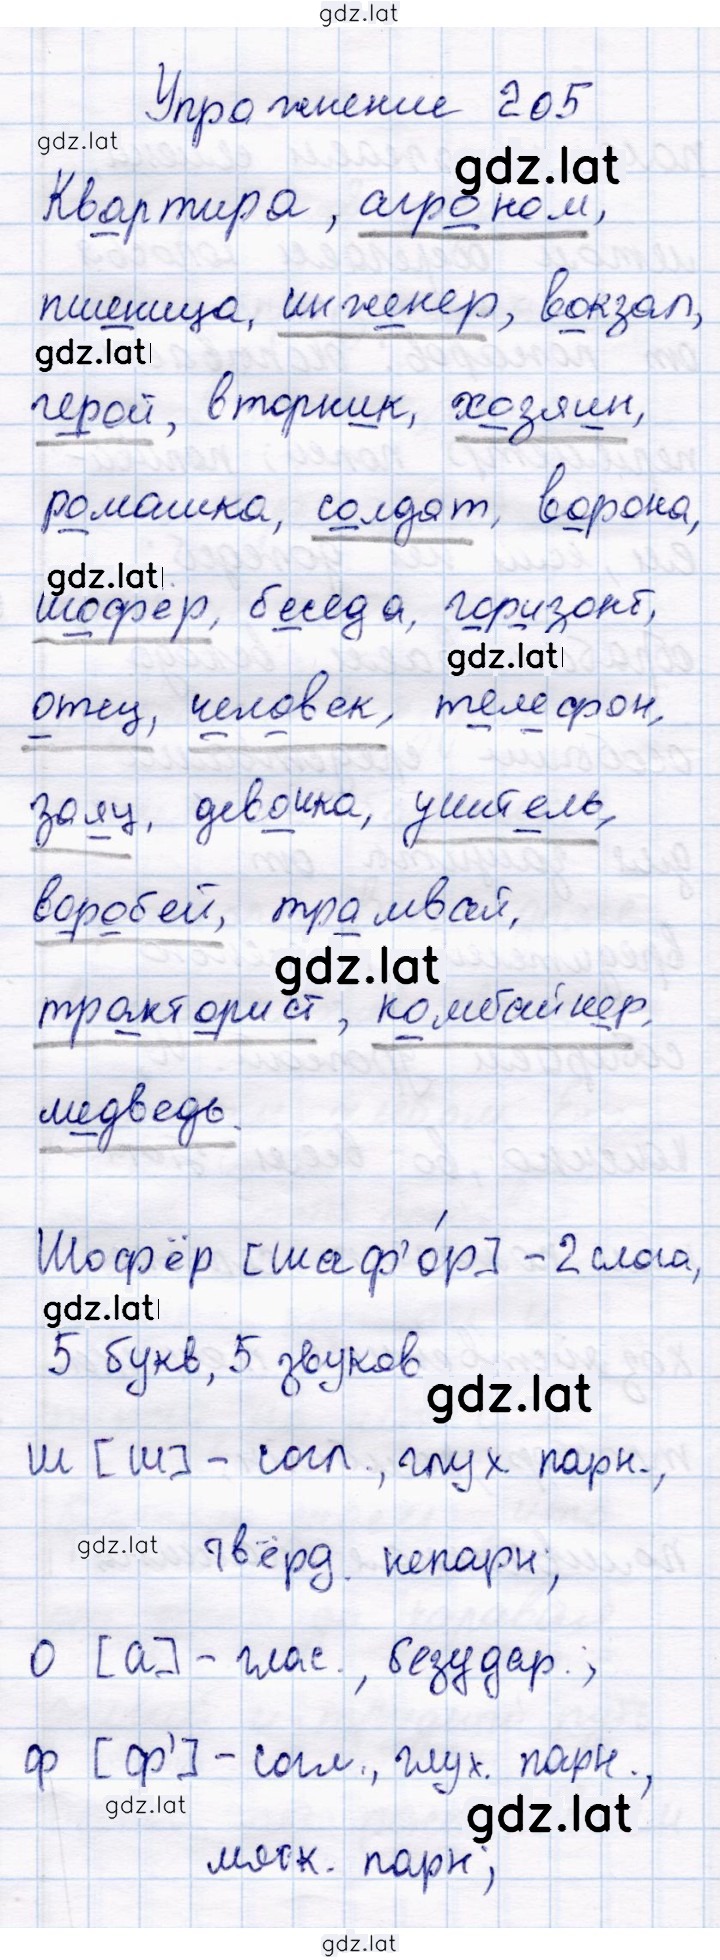 gdz.lat
Упражнение 205
gdz.lat
gdz.lat
Квартира, агроном,
пшеница, инженер, вокзал,
gdz.lat
герой, вторник, хозяин,
ромашка, солдат, ворона,
gdz.lat
шофер, беседа, горизонт,
gdz.lat
отец, человек, телефон,
заяц, девочка, учитель,
воробей, трамвай,
gdz.lat
тракторист, комбайнер,
медведь.
Шофёр [шаф'о́р] - 2 слога,
gdz.lat
5 букв, 5 звуков
gdz.lat
ш [ш] - согл., глух. парн.,
gdz.lat
твёрд. непарн.,
о [а] - глас., безудар.;
ф [ф'] - согл., глух. парн.,
gdz.lat
gdz.lat
мягк. парн;
gdz.lat